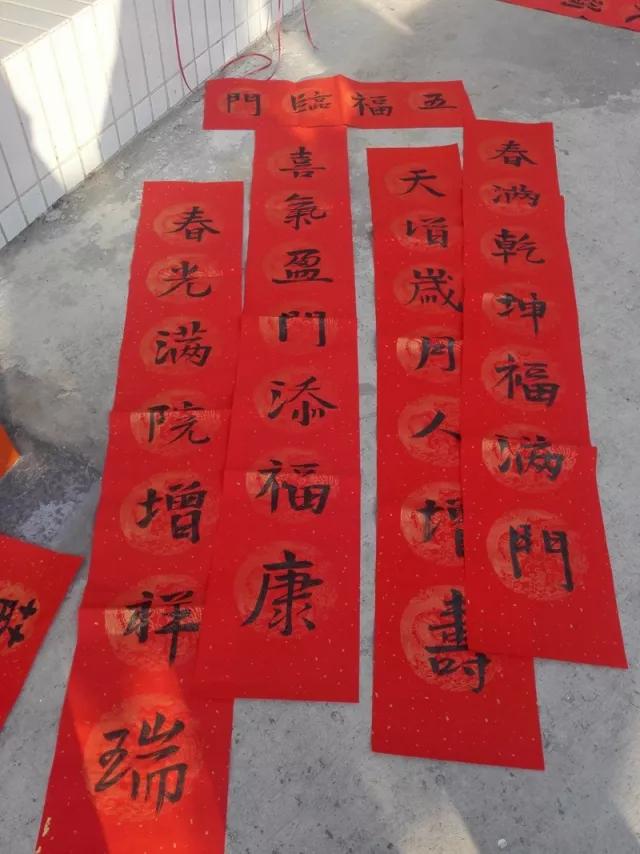 五福臨門
春满乾坤福满門
天增歲月人增壽
喜氣盈門添福康
春光满院增祥瑞